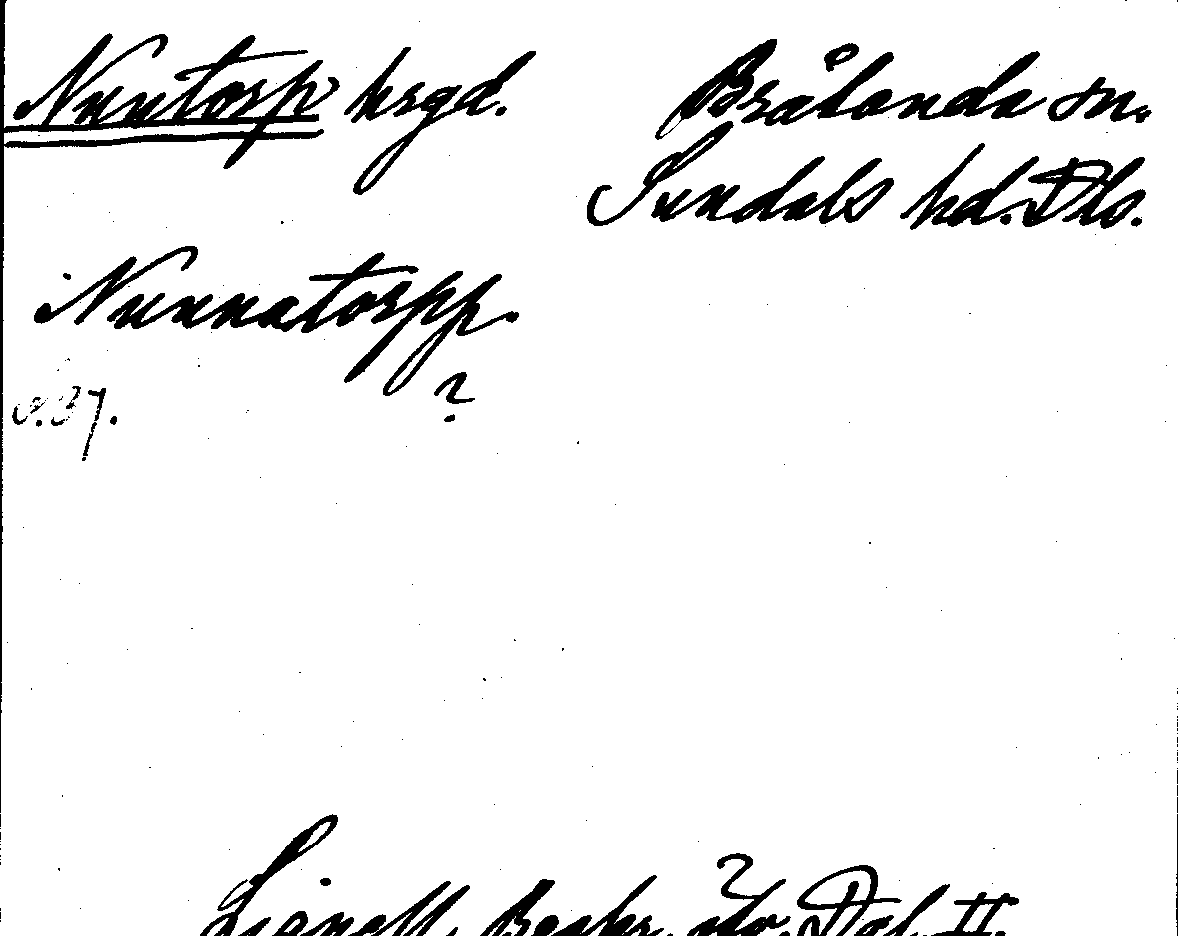 Nuntorp hrgd. Brålanda sn.
Sundals hd. Dls.
Nunnatorpp.
?
s. 37.
Lignell, Beskr. ö̉v. Dal. II.